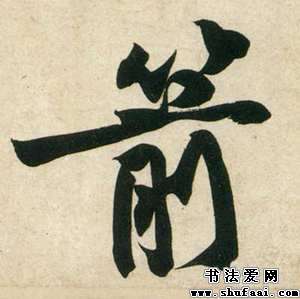 箭
书法爱网
www.shufaai.com